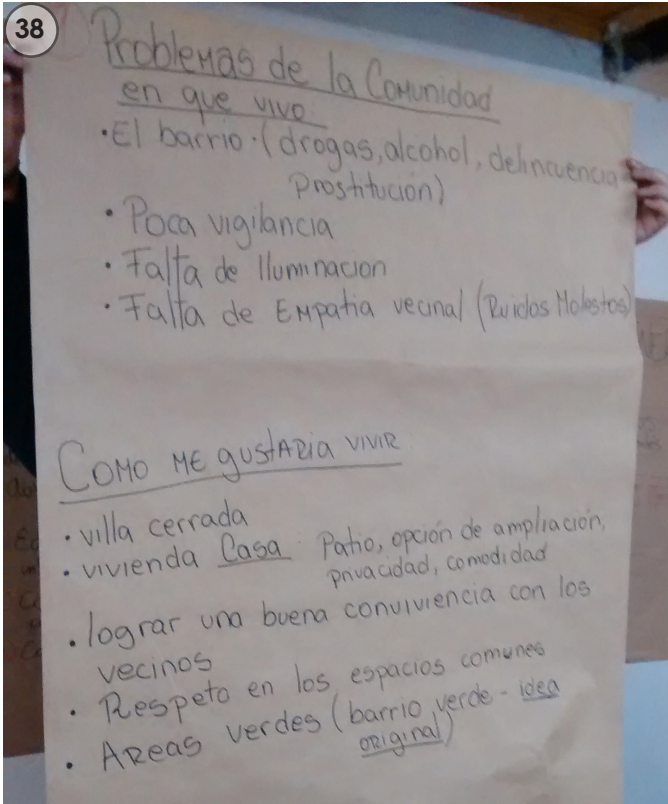 38
Problemas de la Comunidad
en que vivo
• El barrio. (drogas, alcohol, delincuencia
Prostitución)
• Poca vigilancia
• Falta de Iluminacion
• Falta de Empatia vecinal (Ruidos Molestos)
Como me gustaria vivir
• villa cerrada
• vivienda Casa: Patio, opción de ampliación,
privacidad, comodidad
• lograr una buena conviviencia con los
vecinos
• Respeto en los espacios comunes
• Areas verdes (barrio verde - idea
original)